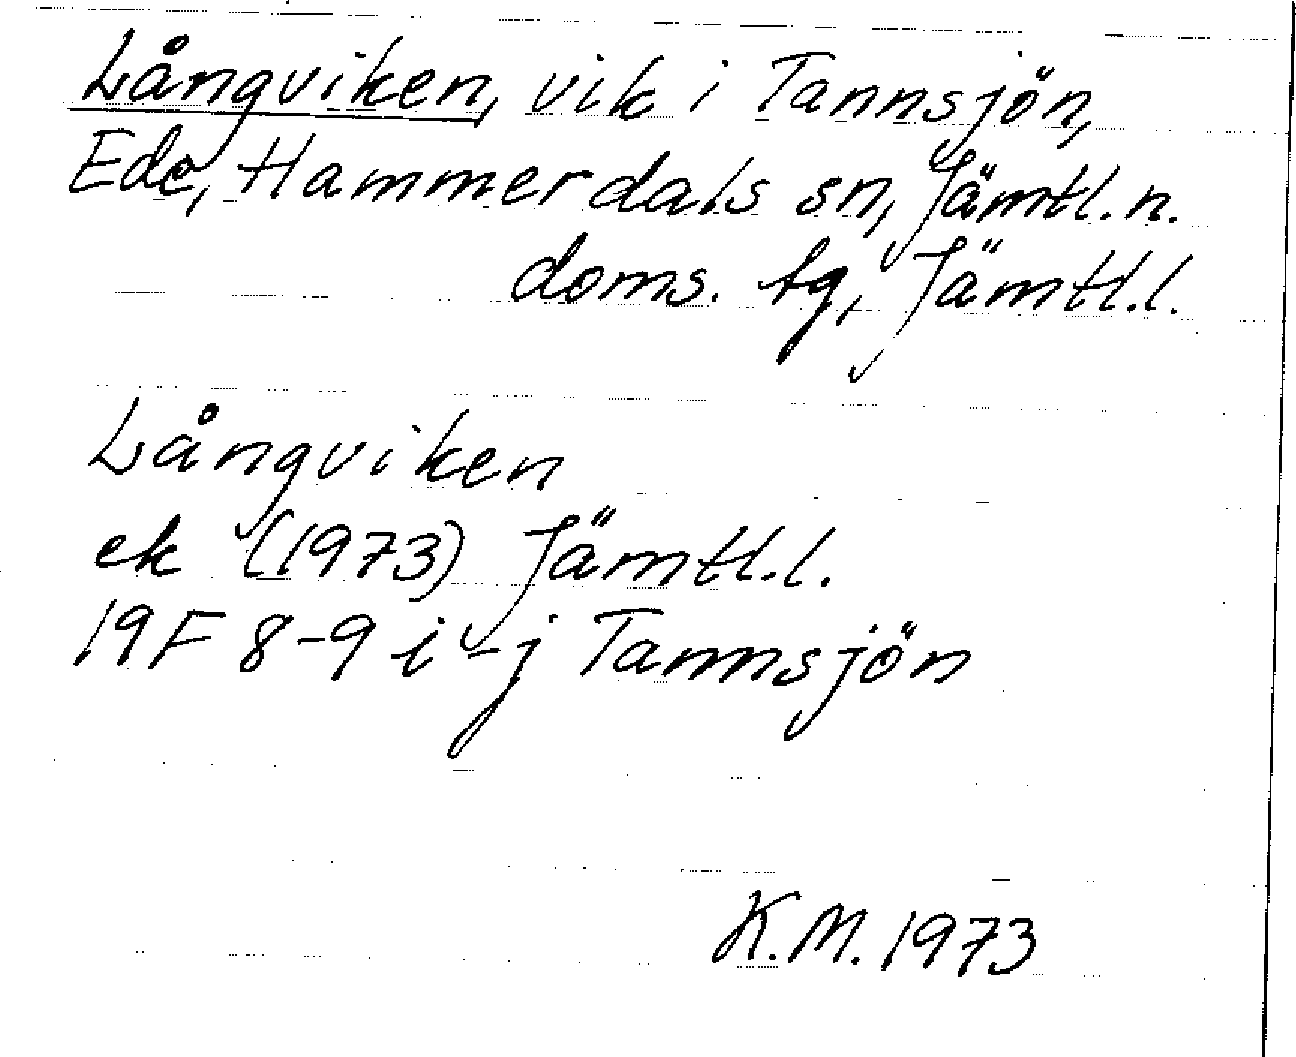 Långviken, vik i Tannsjön,
Ede, Hammerdals sn, Jämtl. n.
doms. tg, Jämtl. l.
Långviken
ek (1973) Jämtl. l.
19F 8-9 i-j Tannsjön
K.M. 1973